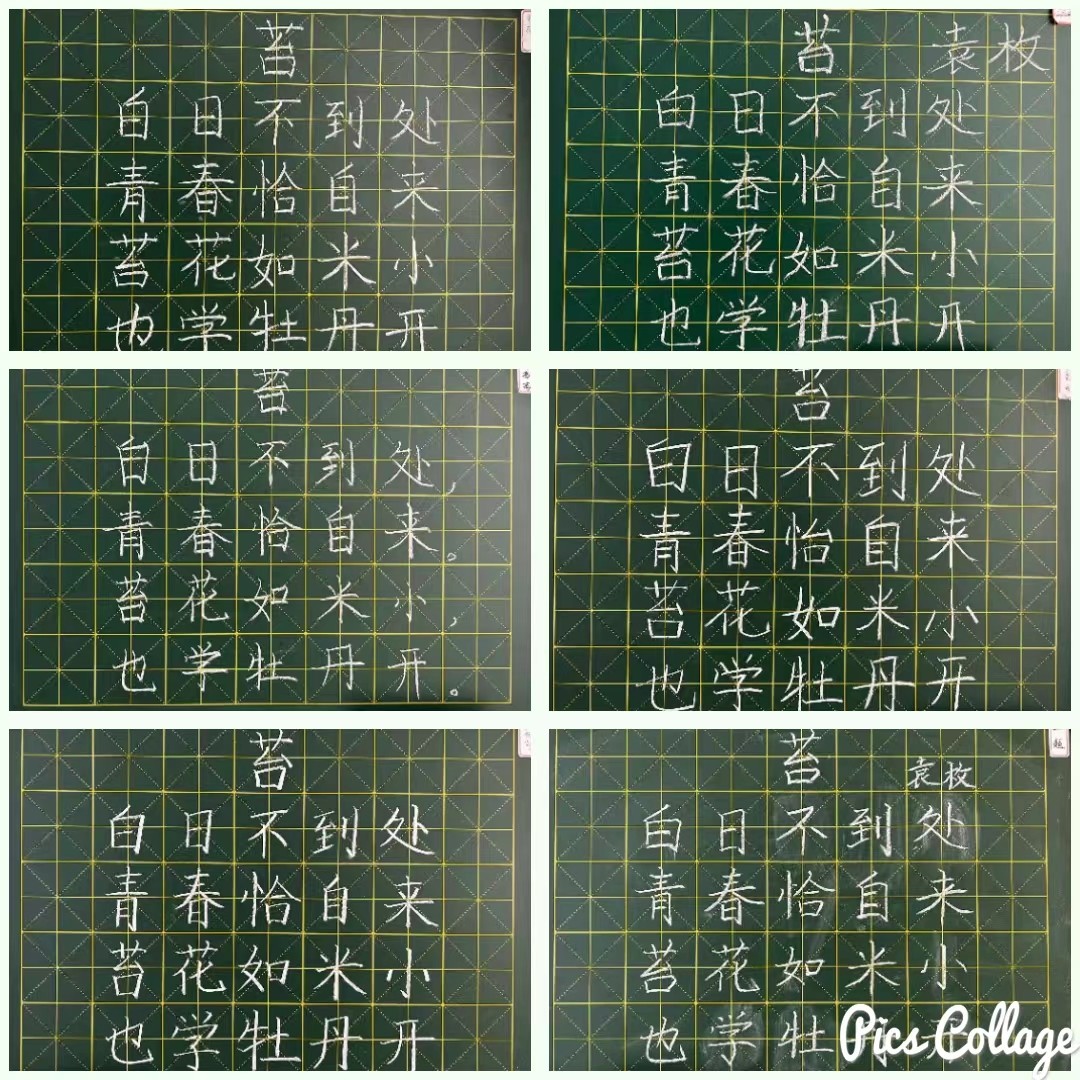 苔
白日不到处
青春恰自来
苔花如米小
也学牡丹开
苔 袁枚
白日不到处
青春恰自来
苔花如米小
也学牡丹开
苔
白日不到处，
青春恰自来。
苔花如米小，
也学牡丹开。
苔
白日不到处
青春怡自来
苔花如米小
也学牡丹开
苔
白日不到处
青春恰自来
苔花如米小
也学牡丹开
苔
袁枚
白日不到处
青春恰自来
苔花如米小
也学牡
Pics Collage